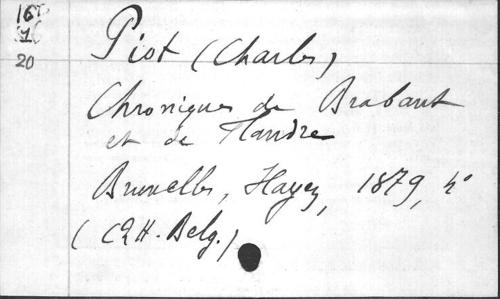 16
1
20
Piot (Charles)
Chroniques de Brabant
et de Flandre
Bruxelles, Hayez, 1879, 4°
(CRH. Belg.)